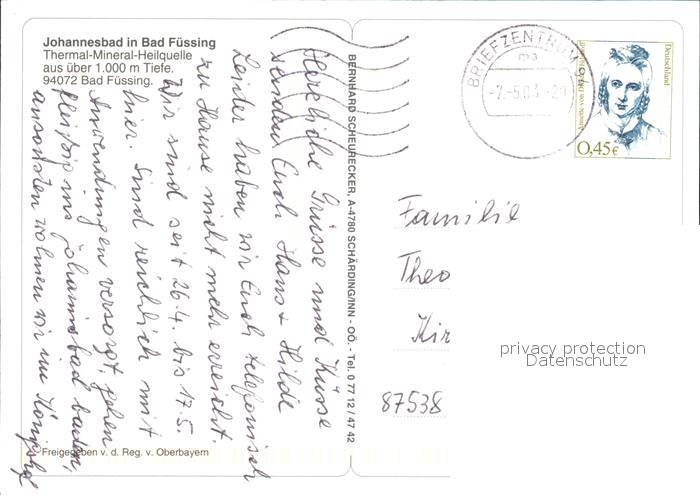 Johannesbad in Bad Füssing
Thermal-Mineral-Heilquelle
aus über 1.000 m Tiefe.
94072 Bad Füssing.
Herzliche Grüsse und Küsse
senden Euch Hans + Hilde
Leider haben wir Euch telefonisch
zu Hause nicht mehr erreicht.
Wir sind seit 26.4. bis 17.5.
hier. Sind reichlich mit
Anwendungen versorgt, gehen
fleißig ins Johannisbad baden,
ansonsten wohnen wir im Königshof
Freigegeben v. d. Reg. v. Oberbayern
BERNHARD SCHEURECKER, A-4780 SCHÄRDING/INN - OÖ. - Tel. 0 77 12 / 47 42
BRIEFZENTRUM
ma
-7.-5.03.-20
Deutschland
0,45€
Familie
Theo
Kir
87538
privacy protection
Datenschutz